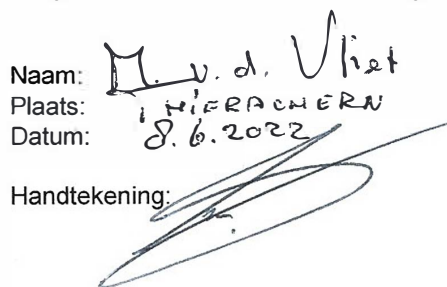 Naam: M. v. d. Vliet
Plaats: THIERACHERN
Datum: 8.6.2022
Handtekening: